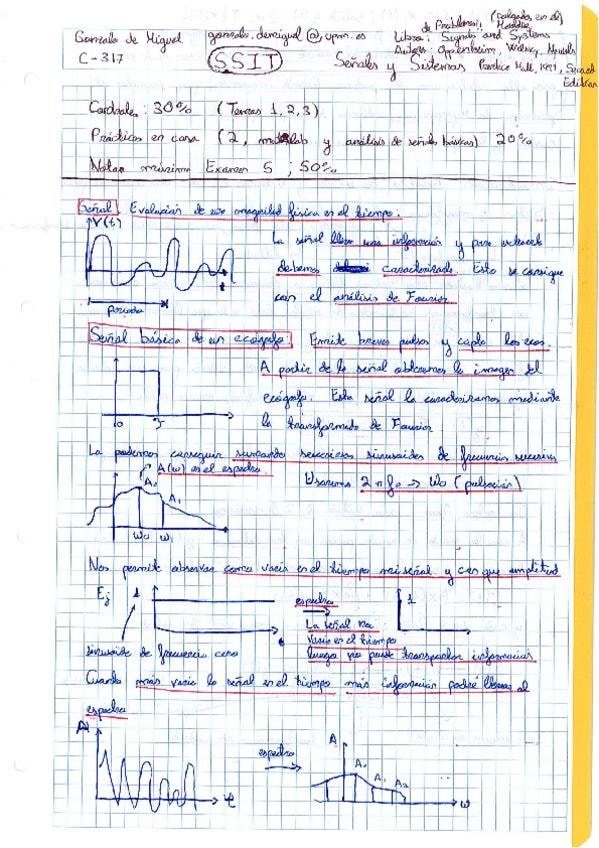 Gonzalo de Miguel
C-317
gonzalo.demiguel@upm.es
SSIT
de Problemas: (colgados en el) Moodle
Libro: Signals and Systems
Autores: Oppenheim, Willsky,
Señales y Sistemas Prentice Hall, 1997, Second
Edition
30% (Temas 1, 2, 3)
Prácticas en casa (2, matlab y análisis de señales básicas) 20%
Nota mínima Examen 5 ; 50%
Señal Evolución de una magnitud física en el tiempo.
V(t)
t
periodo
La señal lleva una información y para extraerla
debemos caracterizarla. Esto se consigue
con el análisis de Fourier
Señal básica de un ecógrafo. Emite breves pulsos y capta los ecos.
A partir de la señal obtenemos la imagen del
ecógrafo. Esta señal la caracterizamos mediante
la transformada de Fourier
0 T
La podemos conseguir sumando sinusoides de frecuencia
A(w) es el espectro.
Ao
A1
Usaremos 2πfo → Wo (pulsación)
Wo W1
Nos permite observar como varía en el tiempo mi señal y con que amplitud
Ej 1
t
espectro
1
La señal no
varía en el tiempo
luego no puede transportar información
sinusoide de frecuencia cero
Cuanto más varíe la señal en el tiempo más información podré llevar al
espectro
A
t
espectro
A
Ao
A1
A2
w